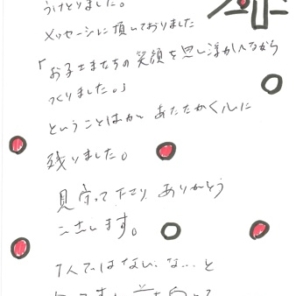 うけとりました。
メッセージに頂しておりました
「お子さまたちの笑顔を思い浮かべながら
つくりました。」
ということばが あたたかく心に
残りました。
見守って下さり ありがとう
ございます。
1人ではない、な…と